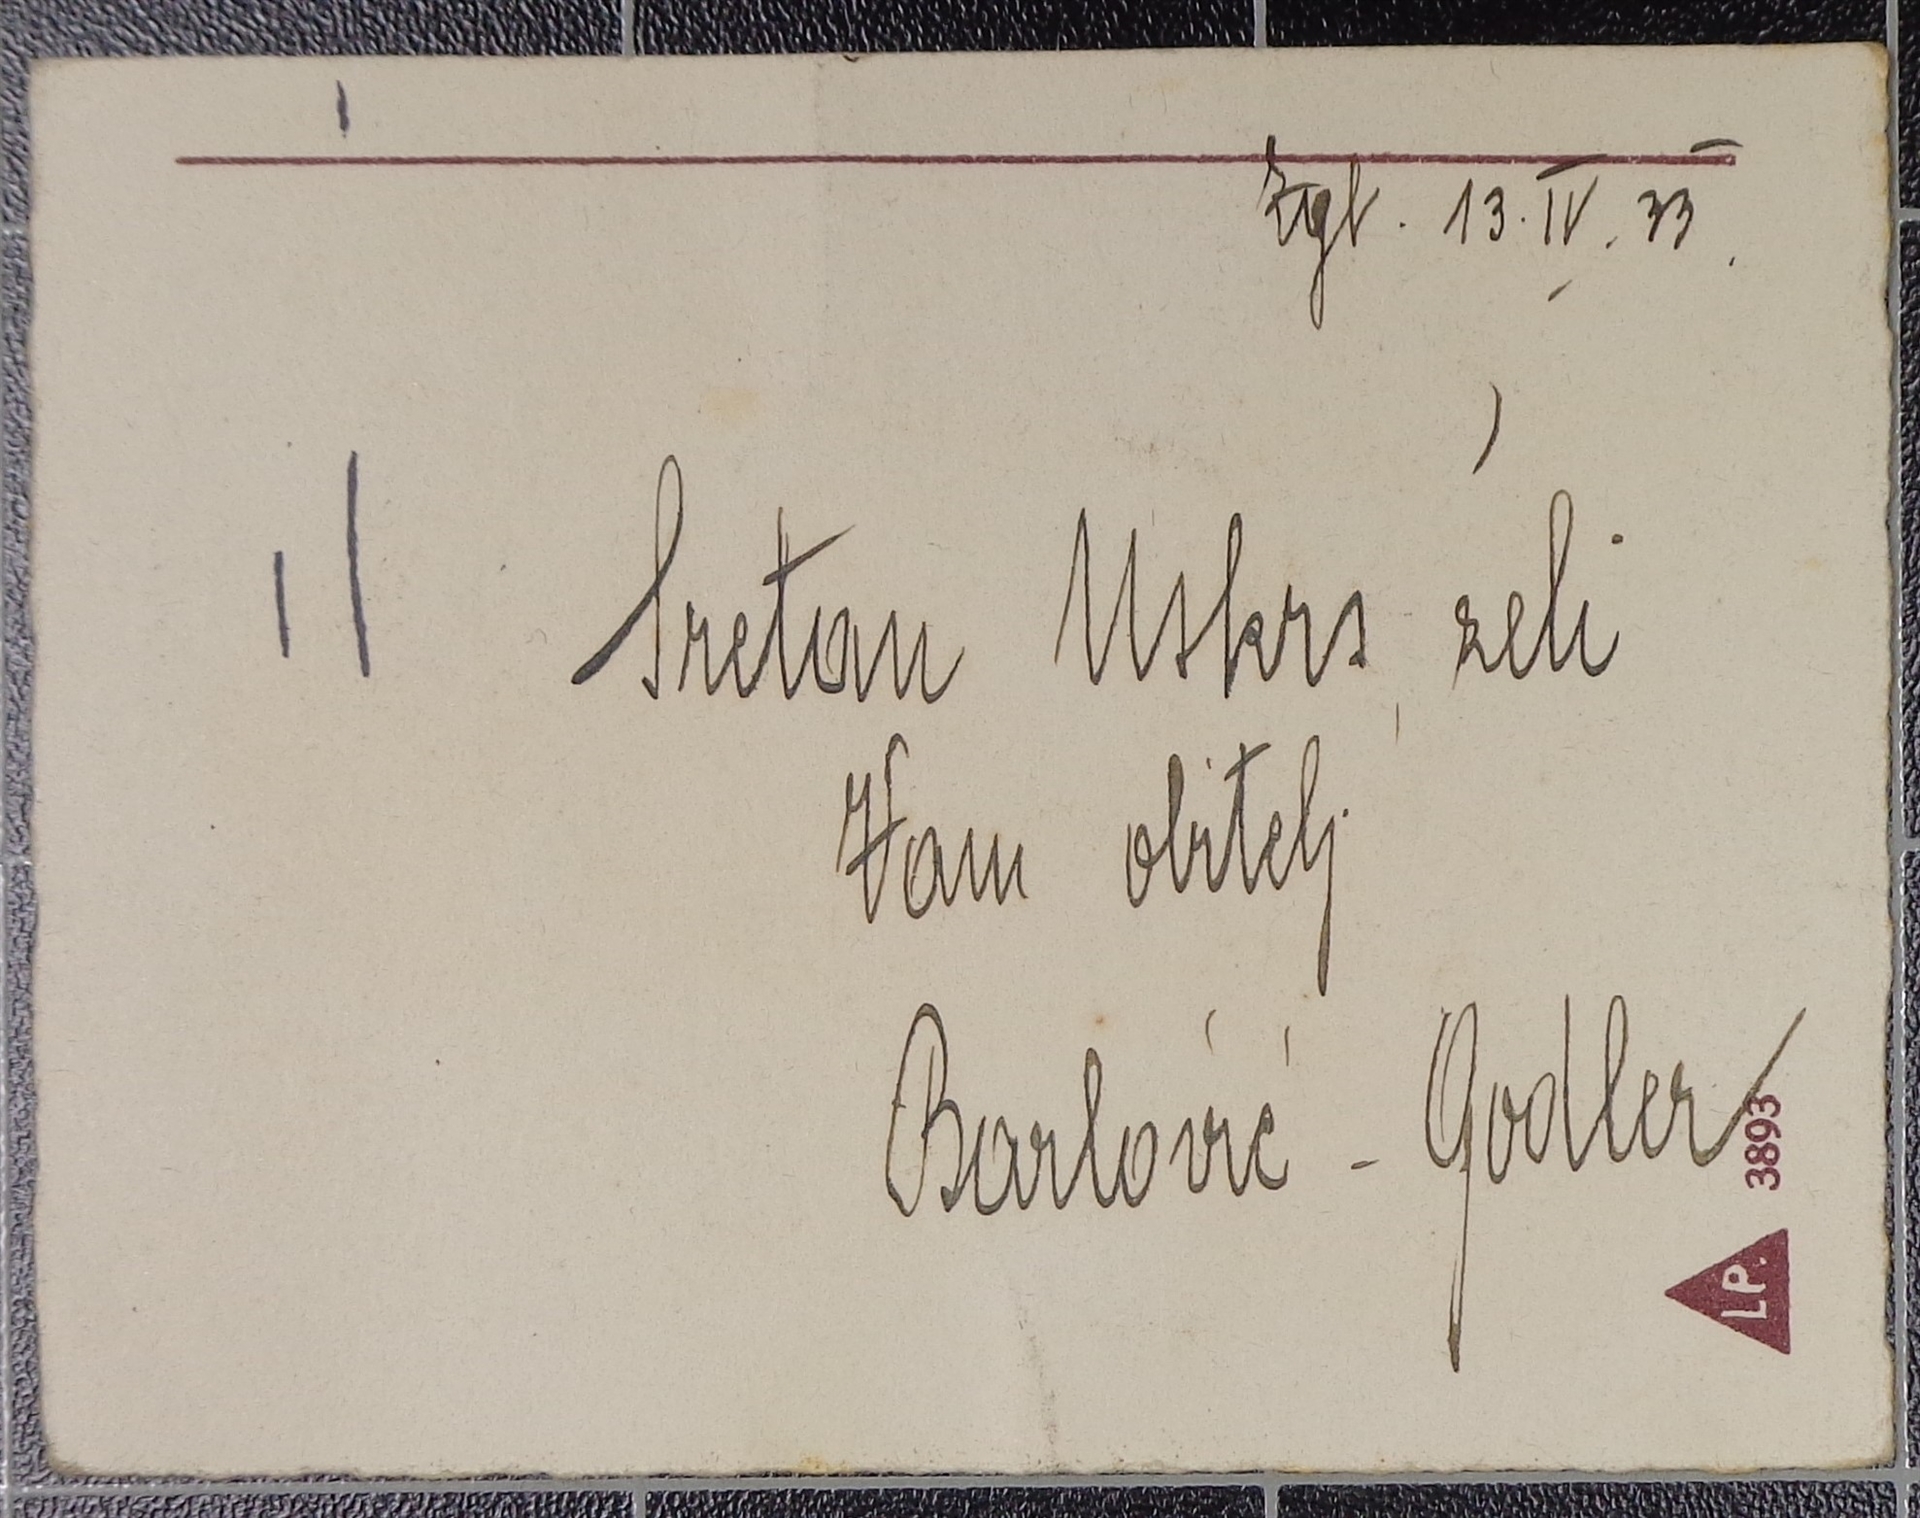 Zgb. 13. IV. 33.
Sretan Uskrs želi
Vam obitelj
Barlović - Godler
3893
LP.